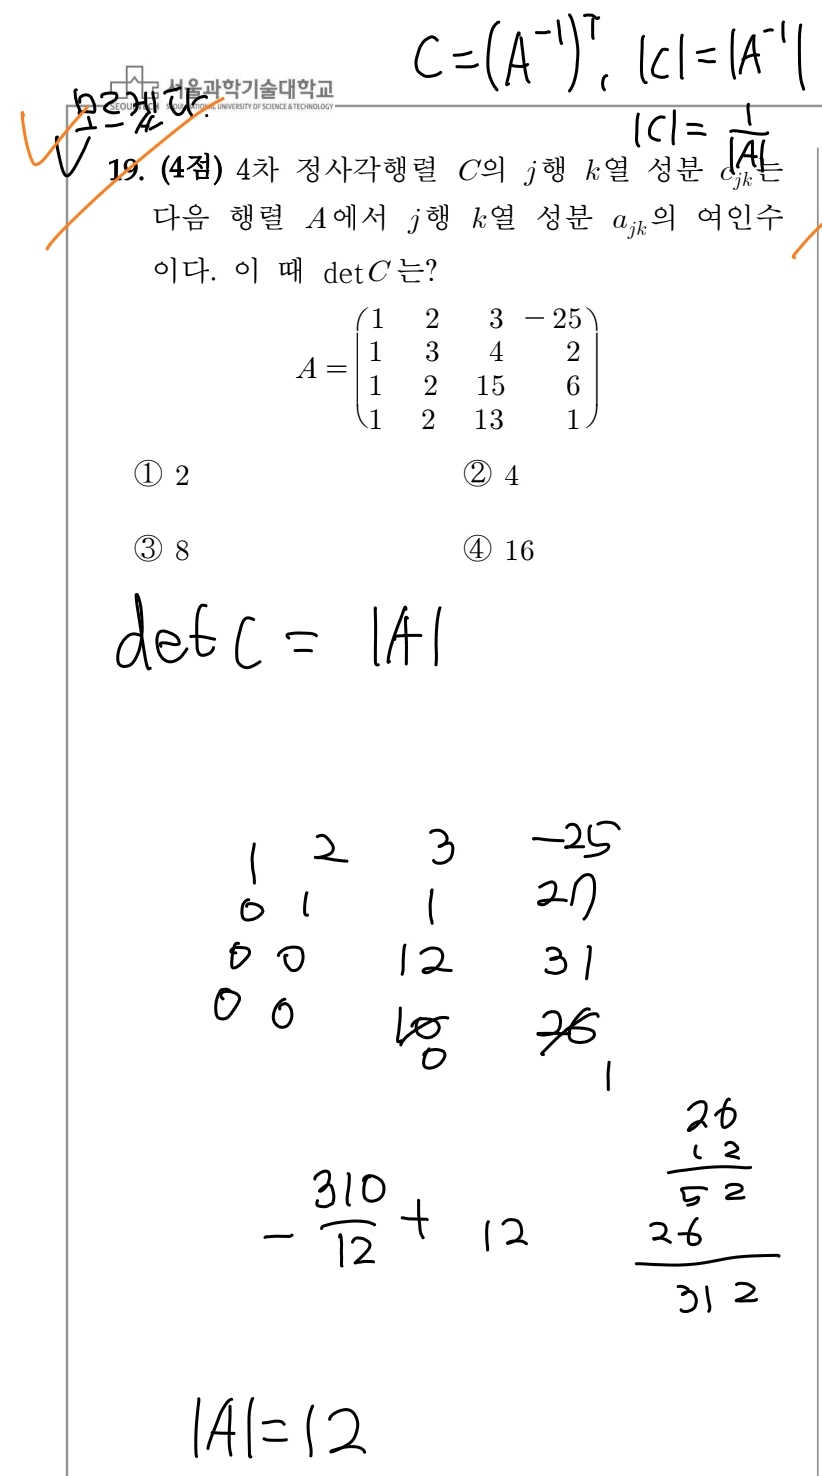 C = (A⁻¹)ᵀ, |C| = |A⁻¹|
서울과학기술대학교
SEOULTECH SEOUL NATIONAL UNIVERSITY OF SCIENCE & TECHNOLOGY
모르겠다.
|C| = 1/|A|
19. (4점) 4차 정사각행렬 C의 j행 k열 성분 c_jk는
다음 행렬 A에서 j행 k열 성분 a_jk의 여인수
이다. 이 때 det C는?
A = (1 2 3 −25
1 3 4 2
1 2 15 6
1 2 13 1)
① 2 ② 4
③ 8 ④ 16
det C = |A|
1 2 3 −25
0 1 1 27
0 0 12 31
0 0 10 26
0 1
26
12
− 310/12 + 12
52
26
312
|A| = 12